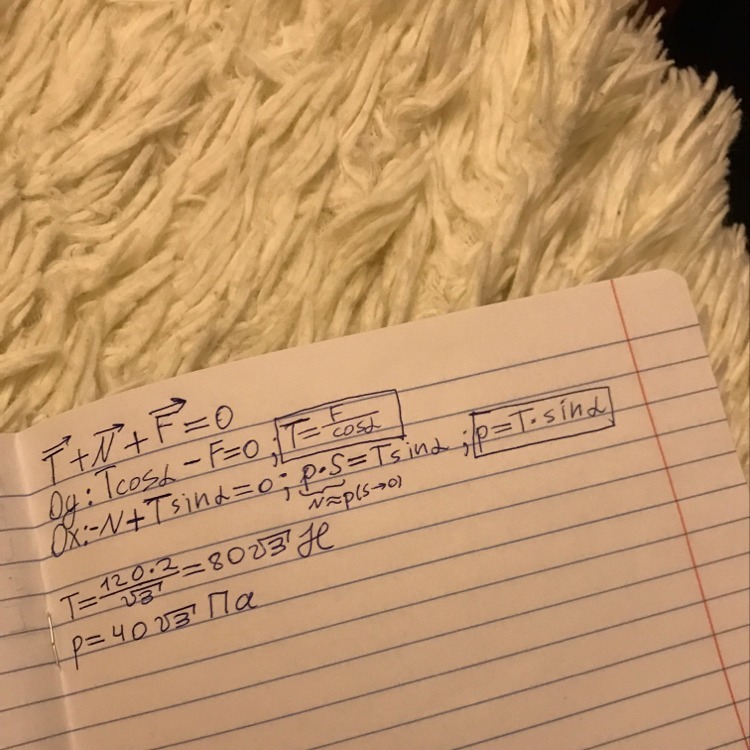 T⃗ + N⃗ + F⃗ = 0
Oy: Tcosα − F = 0 ; T = F/cosα
Ox: −N + Tsinα = 0 ; p·S = Tsinα ; p = T·sinα
N≈p(S→0)
T = 120·2/√3 = 80√3 Н
p = 40√3 Па